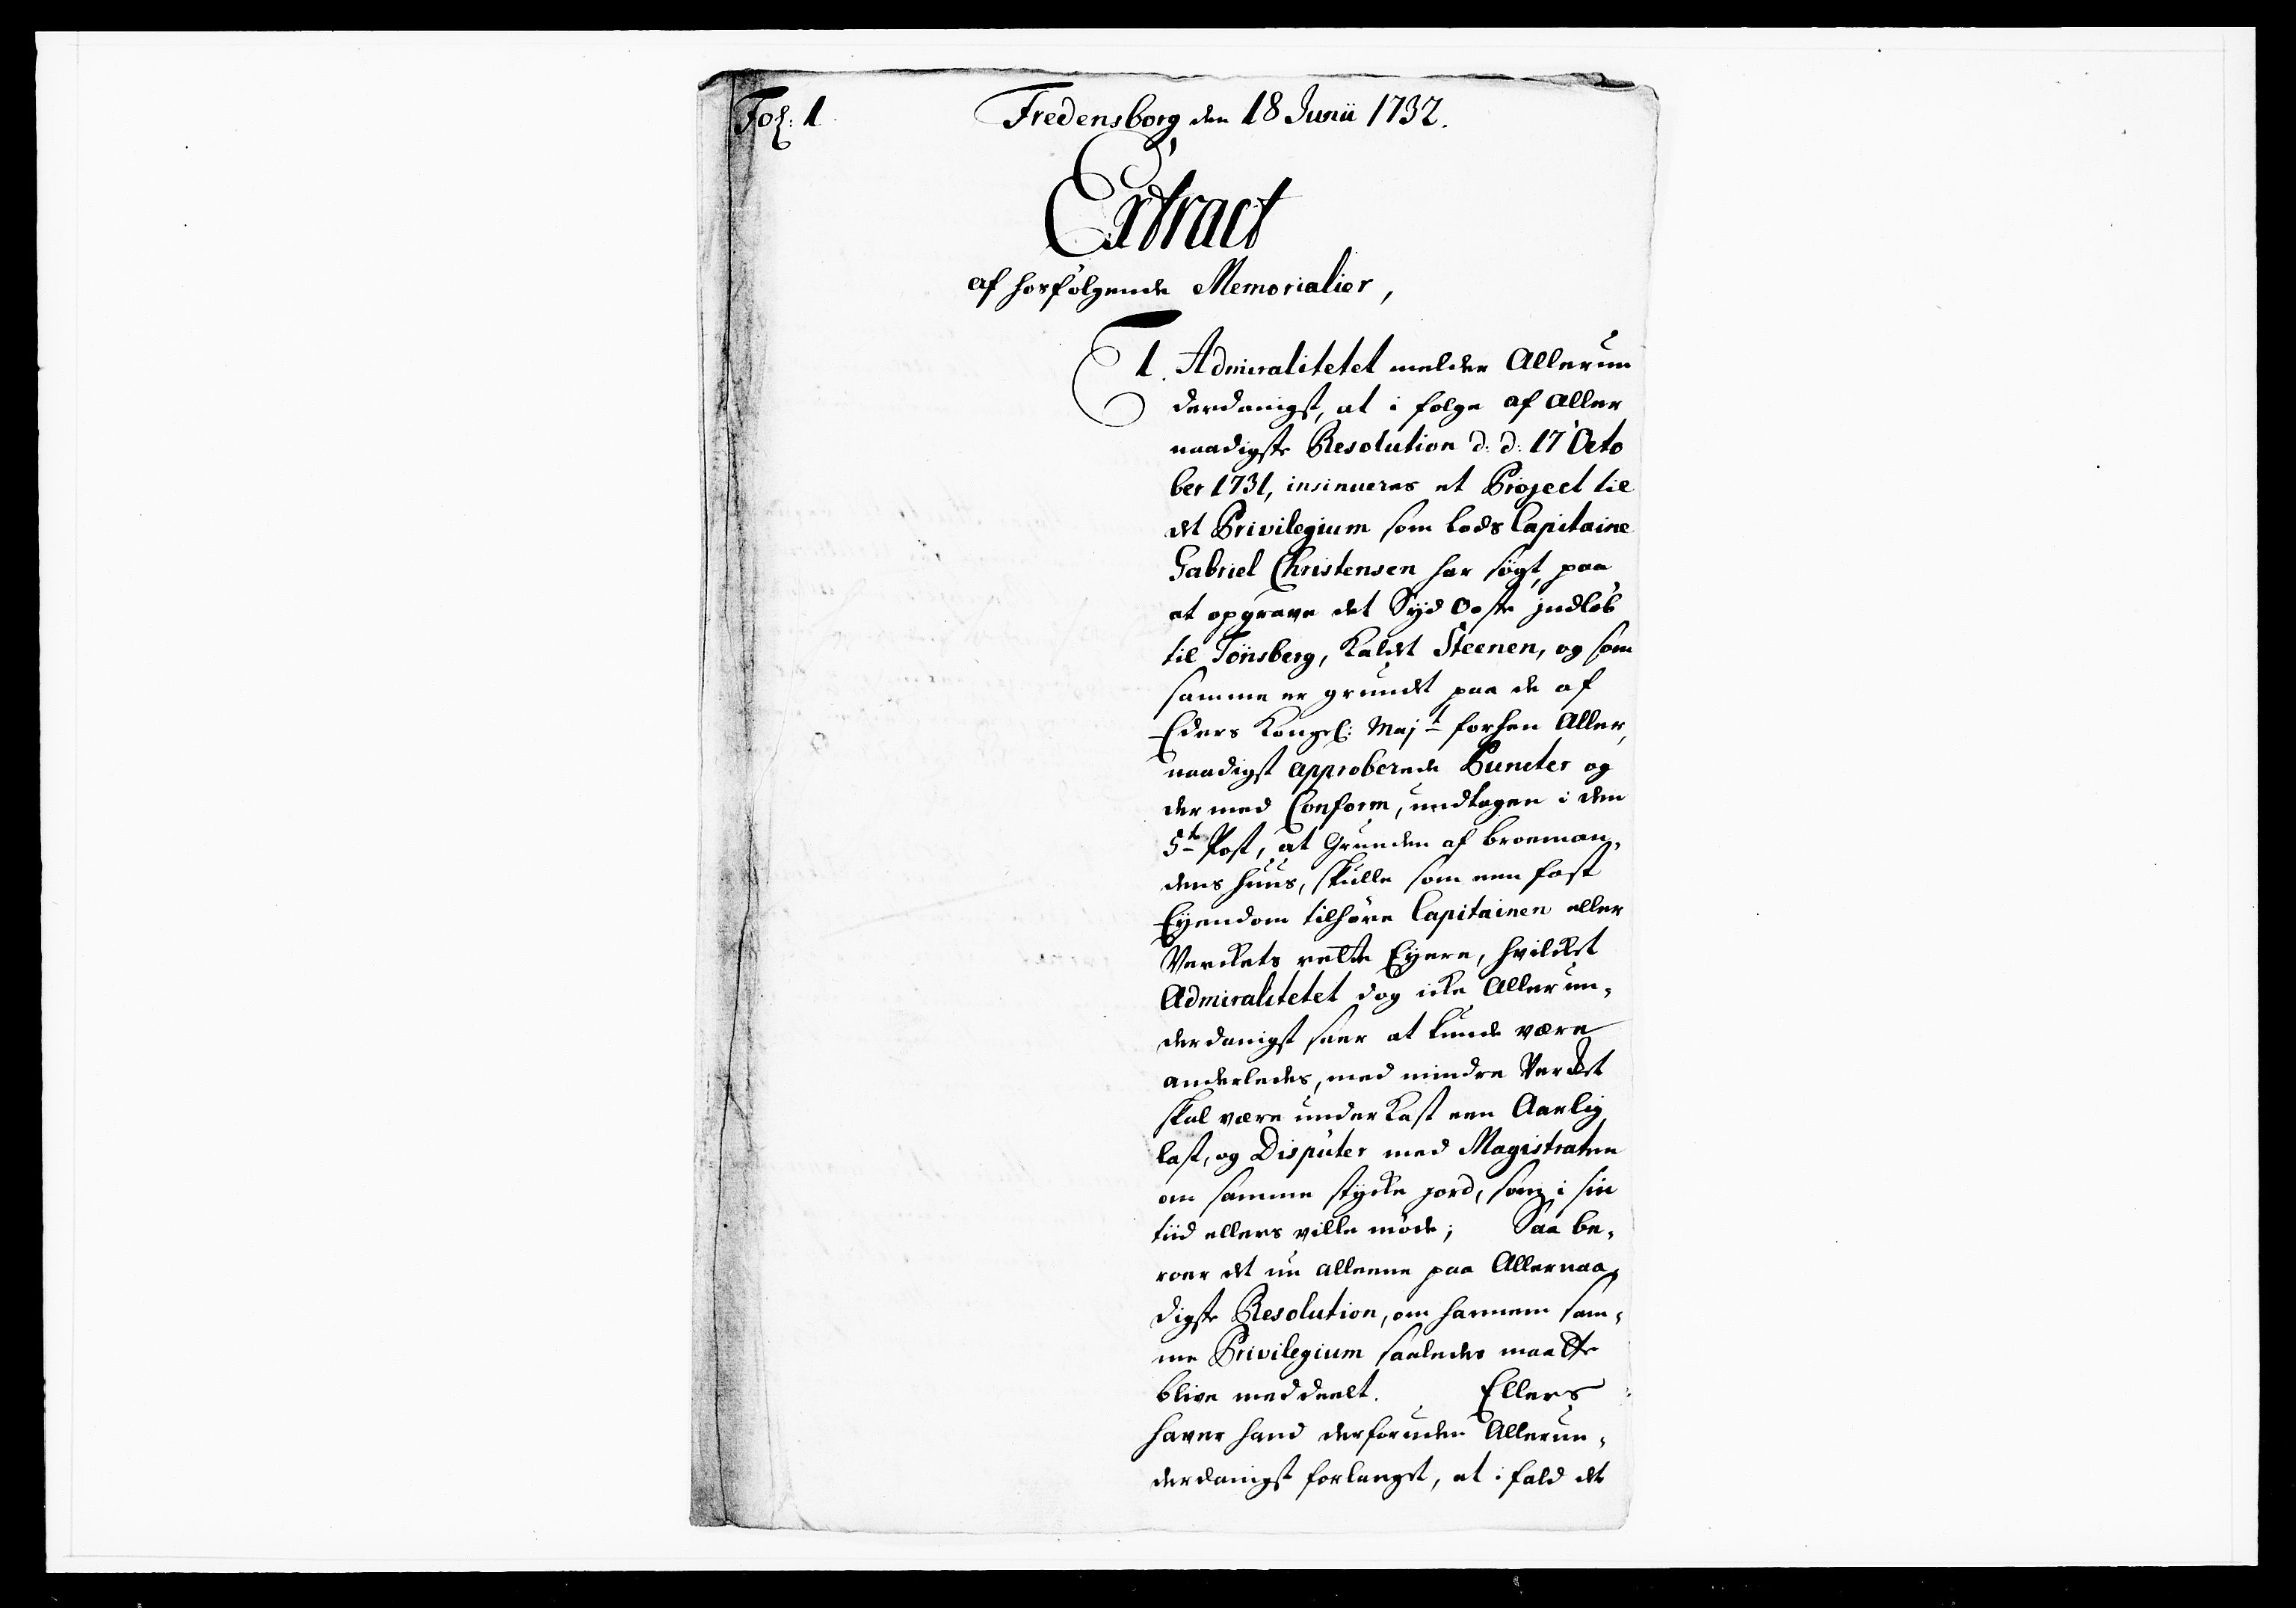 Fol: 1
Fredensborg den 18 Junii 1732.
Extract
af hosfølgende Memorialier,
1. Admiralitetet melder Allerun
derdanigst, at i følge af Aller,
naadigste Resolution d: d: 17 Octo
ber 1731, insinueres et Project til
det Privilegium som Lods Capitaine
Gabriel Christensen har søgt, paa
at opgrave det Syd Oste jndløb
til Tønsberg, Kaldet Steenen, og som
samme er grundet paa de af
Eders Kongel: Majt forhen Aller,
naadigst approberede Puncter og
der med Conform, undtagen i den
5te Post, at Grunden af broeman,
dens huus, skulle som een fast
Eyendom tilhøre Capitainen eller
Verckets rette Eyere, hvilcket
Admiralitetet dog icke Allerun,
derdanigst seer at kunde være
anderledes, med mindre Vercket
skal være underkast een Aarlig
last, og Disputer med Magistraten
om samme stycke jord, som i sin
tiid ellers ville møde; Saa be,
roer det nu alleene paa Allernaa,
digste Resolution, om hannem sam,
me Privilegium saaledes maatte
blive meddeelt. Ellers
haver hand derforuden Allerun,
derdanigst forlanget, at i fald det